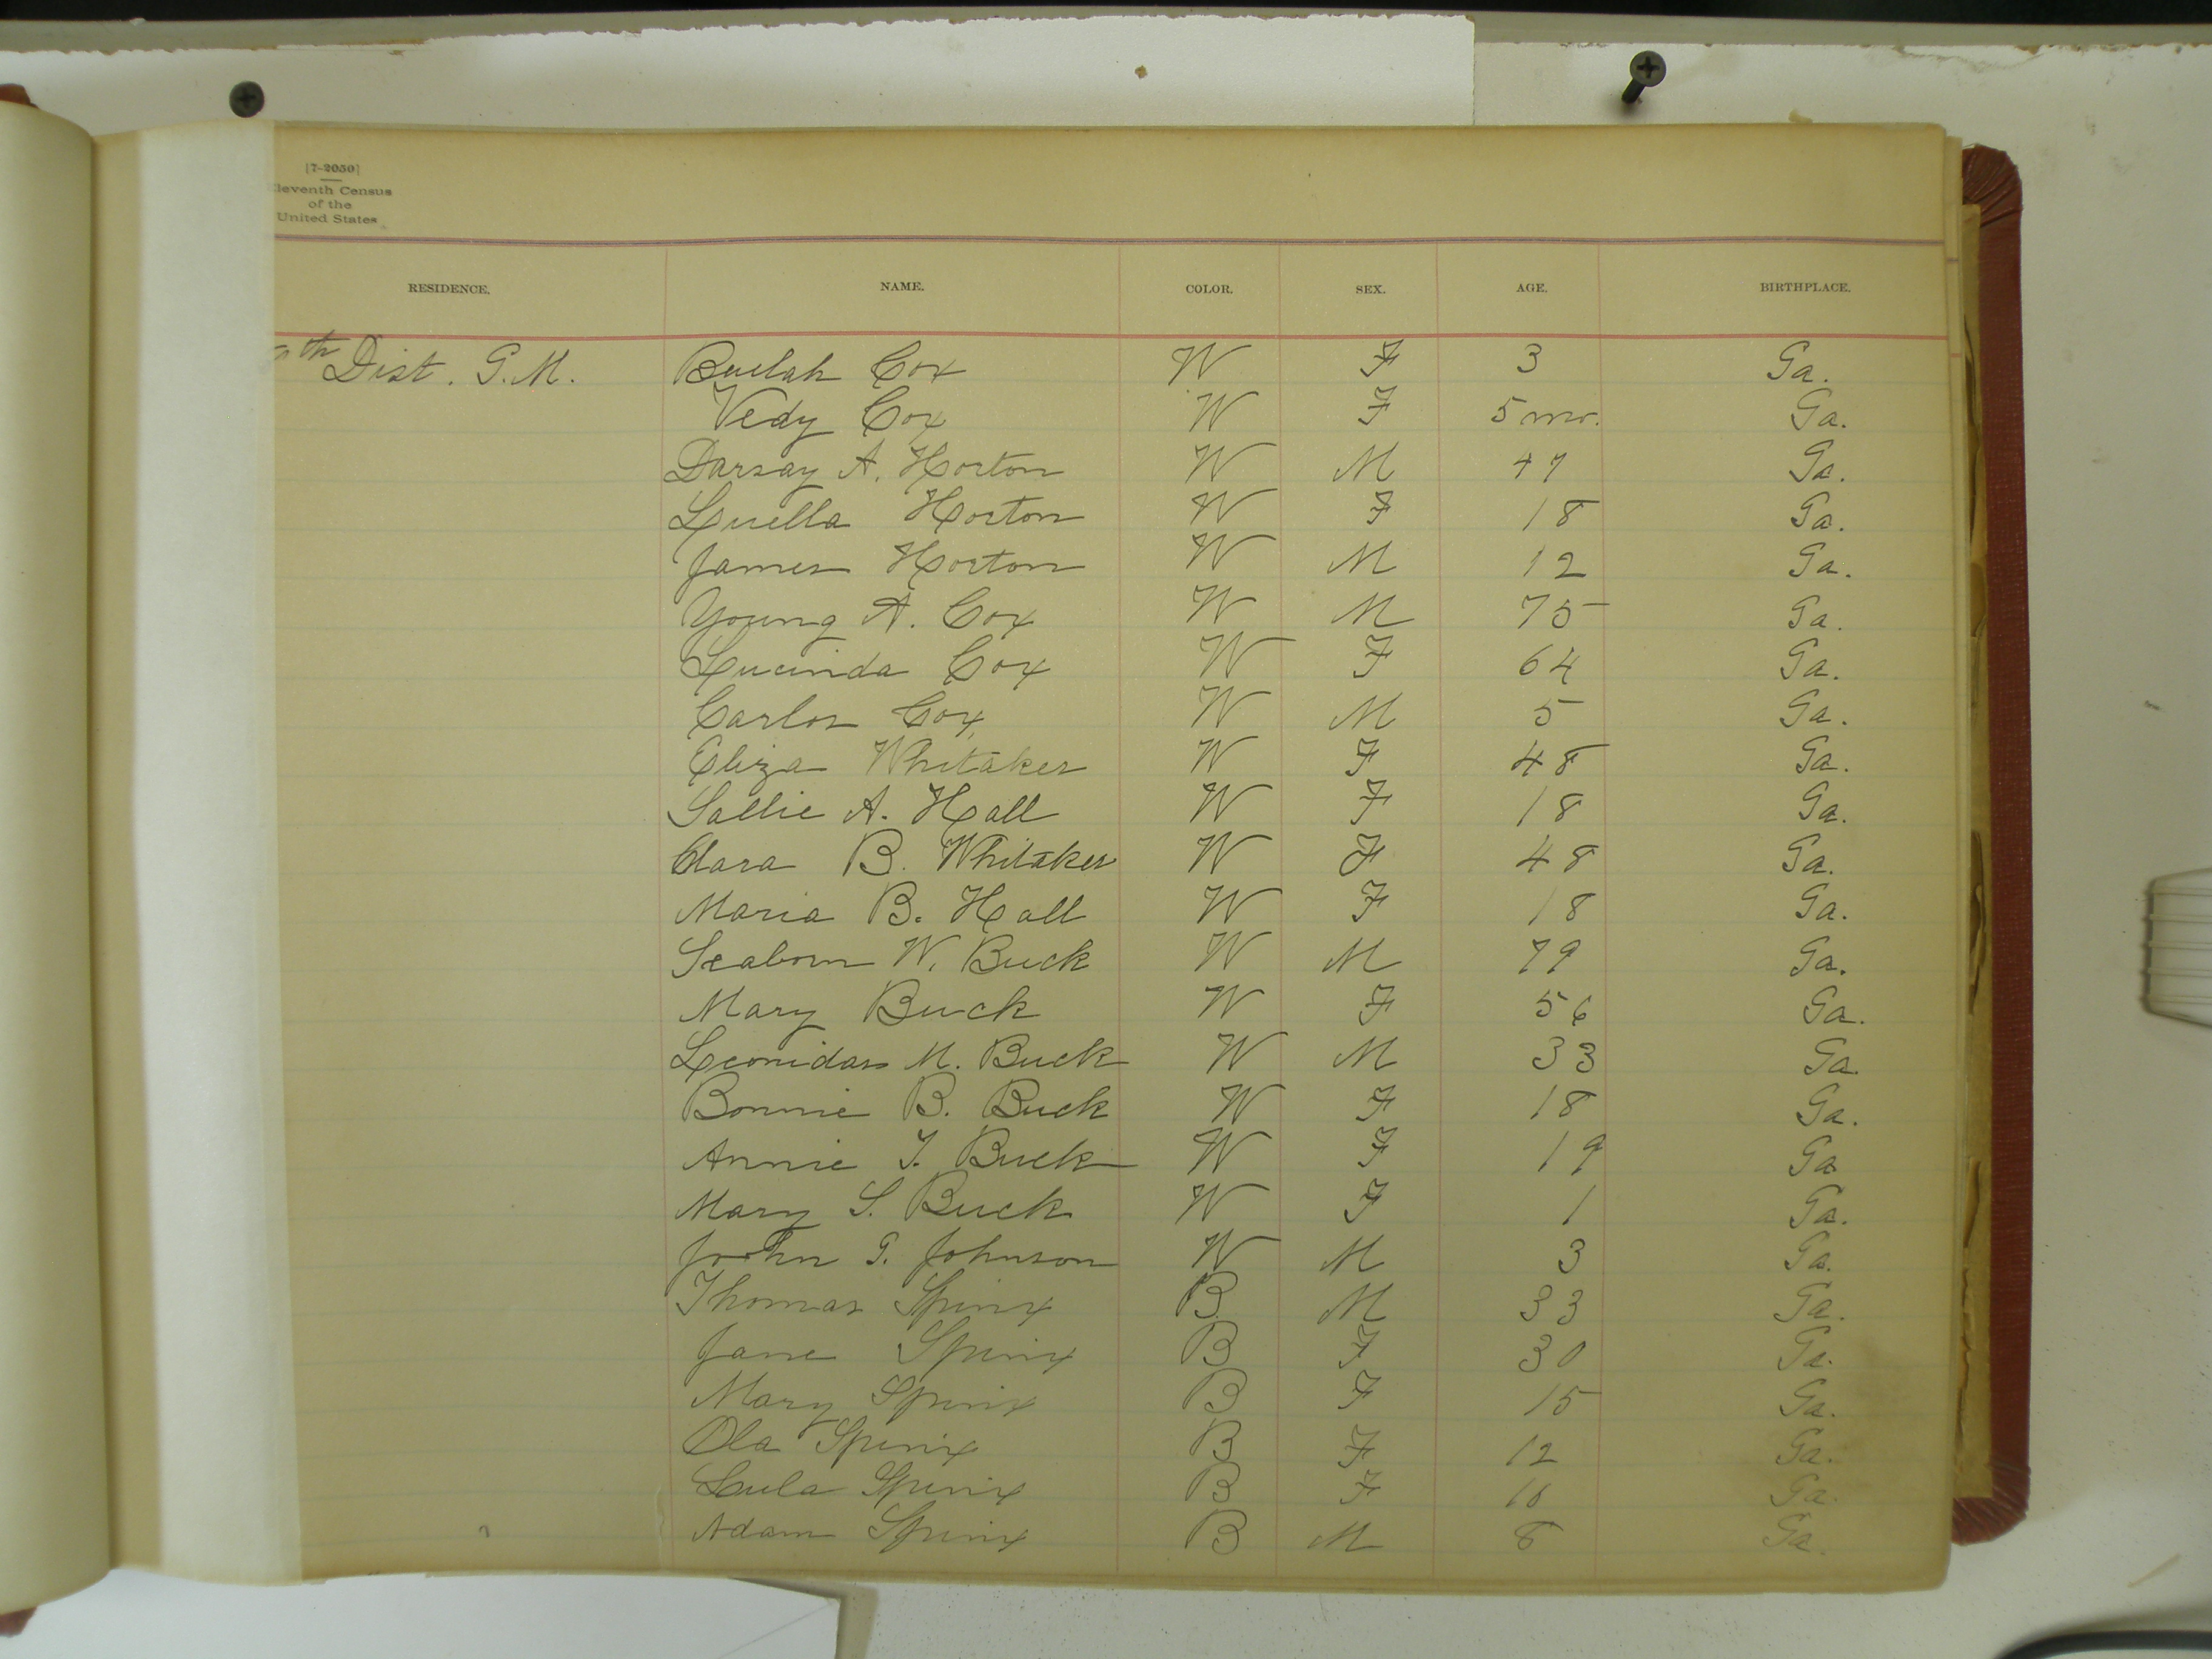 [7-2050]
Eleventh Census
of the
United States
RESIDENCE. NAME. COLOR. SEX. AGE. BIRTHPLACE.
th Dist. G.M. Buelah Cox W F 3 Ga.
Vedy Cox W F 5 mo. Ga.
Darsay A. Horton W M 47 Ga.
Luella Horton W F 18 Ga.
James Horton W M 12 Ga.
Young A. Cox W M 75 Ga.
Lucinda Cox W F 64 Ga.
Carlos Cox W M 5 Ga.
Eliza Whitaker W F 48 Ga.
Sallie A. Hall W F 18 Ga.
Clara B. Whitaker W F 48 Ga.
Maria B. Hall W F 18 Ga.
Seaborn W. Buck W M 79 Ga.
Mary Buck W F 56 Ga.
Leonidas M. Buck W M 33 Ga.
Bonnie B. Buck W F 18 Ga.
Annie T. Buck W F 19 Ga
Mary S. Buck W F 1 Ga.
John G. Johnson W M 3 Ga.
Thomas Spinx B M 33 Ga.
Jane Spinx B F 30 Ga.
Mary Spinx B F 15 Ga.
Ola Spinx B F 12 Ga.
Lula Spinx B F 10 Ga.
Adam Spinx B M 8 Ga.